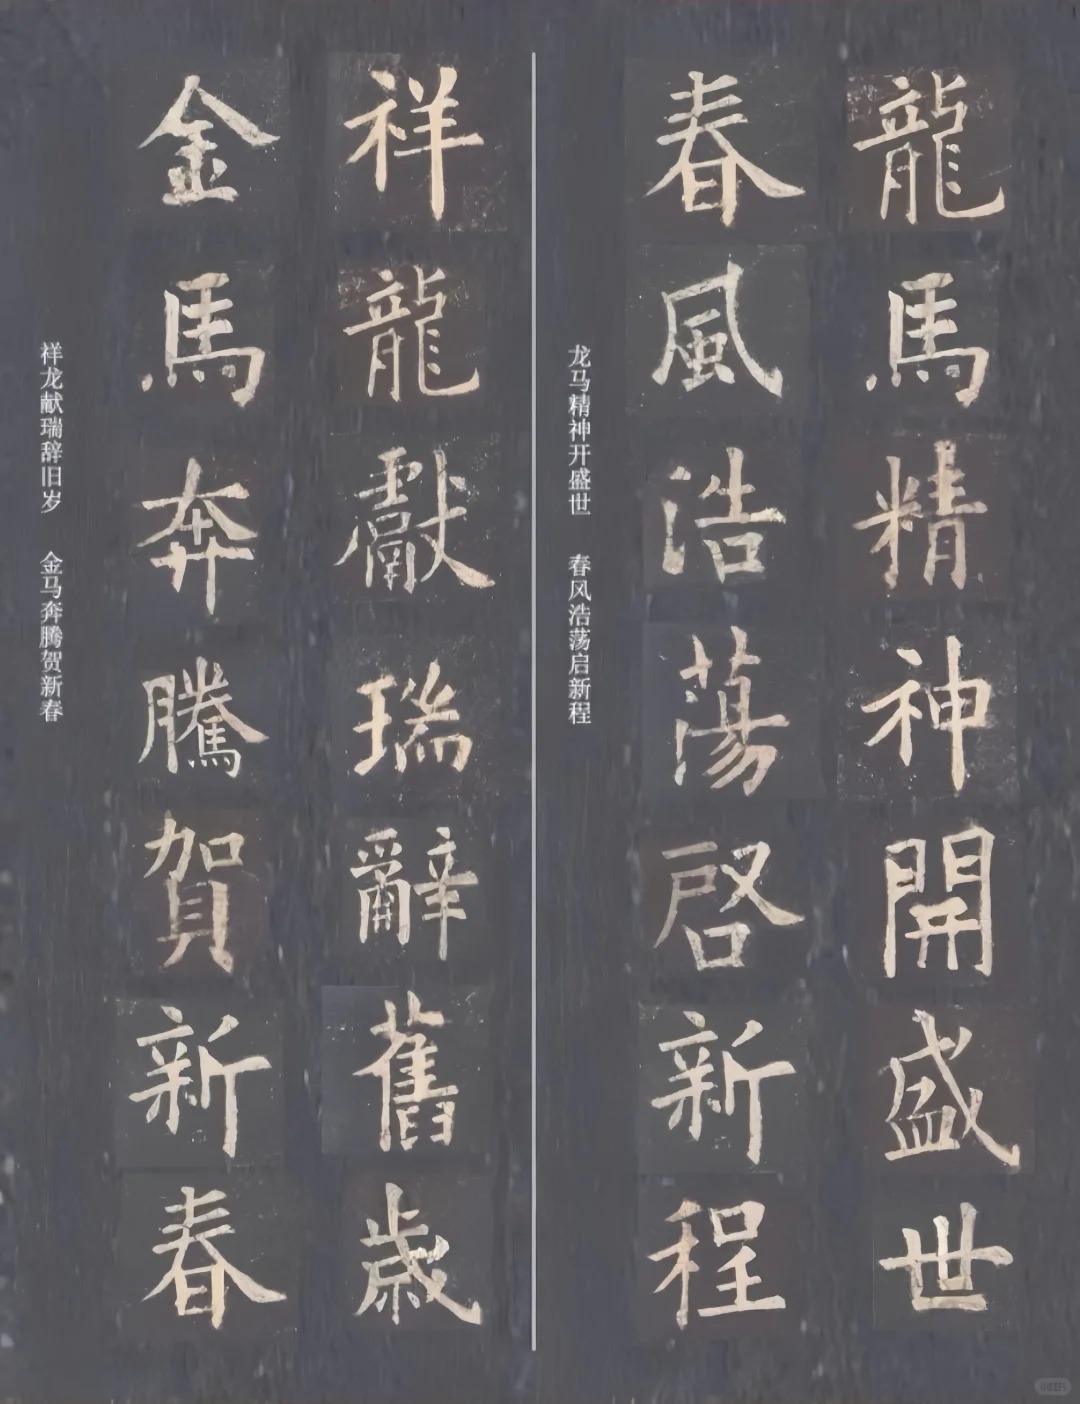 龍馬精神開盛世
春風浩蕩啓新程
龙马精神开盛世 春风浩荡启新程
祥龍獻瑞辭舊歲
金馬奔騰賀新春
祥龙献瑞辞旧岁 金马奔腾贺新春